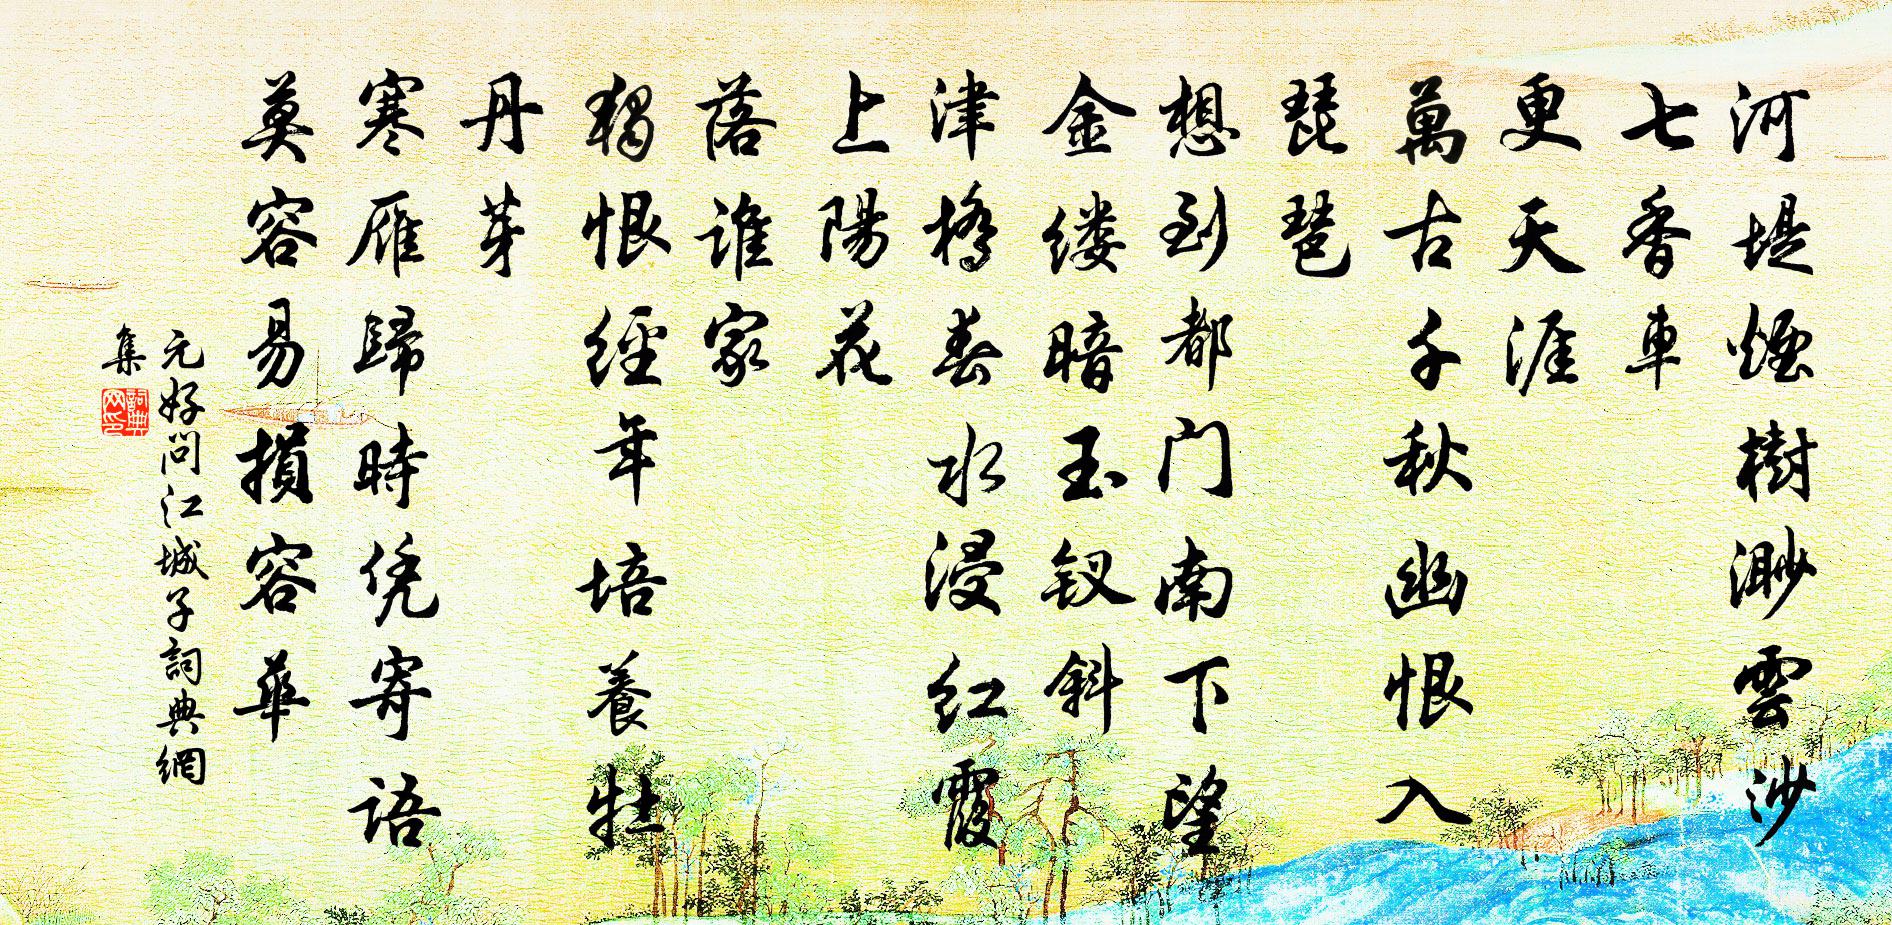 河堤煙樹渺雲沙
七香車
更天涯
萬古千秋幽恨入
琵琶
想到都门南下望
金缕暗玉钗斜
津橋春水浸红霞
上陽花
落谁家
獨恨經年培養牡
丹芽
寒雁歸時凭寄语
莫容易損容華
元好问江城子詞典網
集
詞典
网印